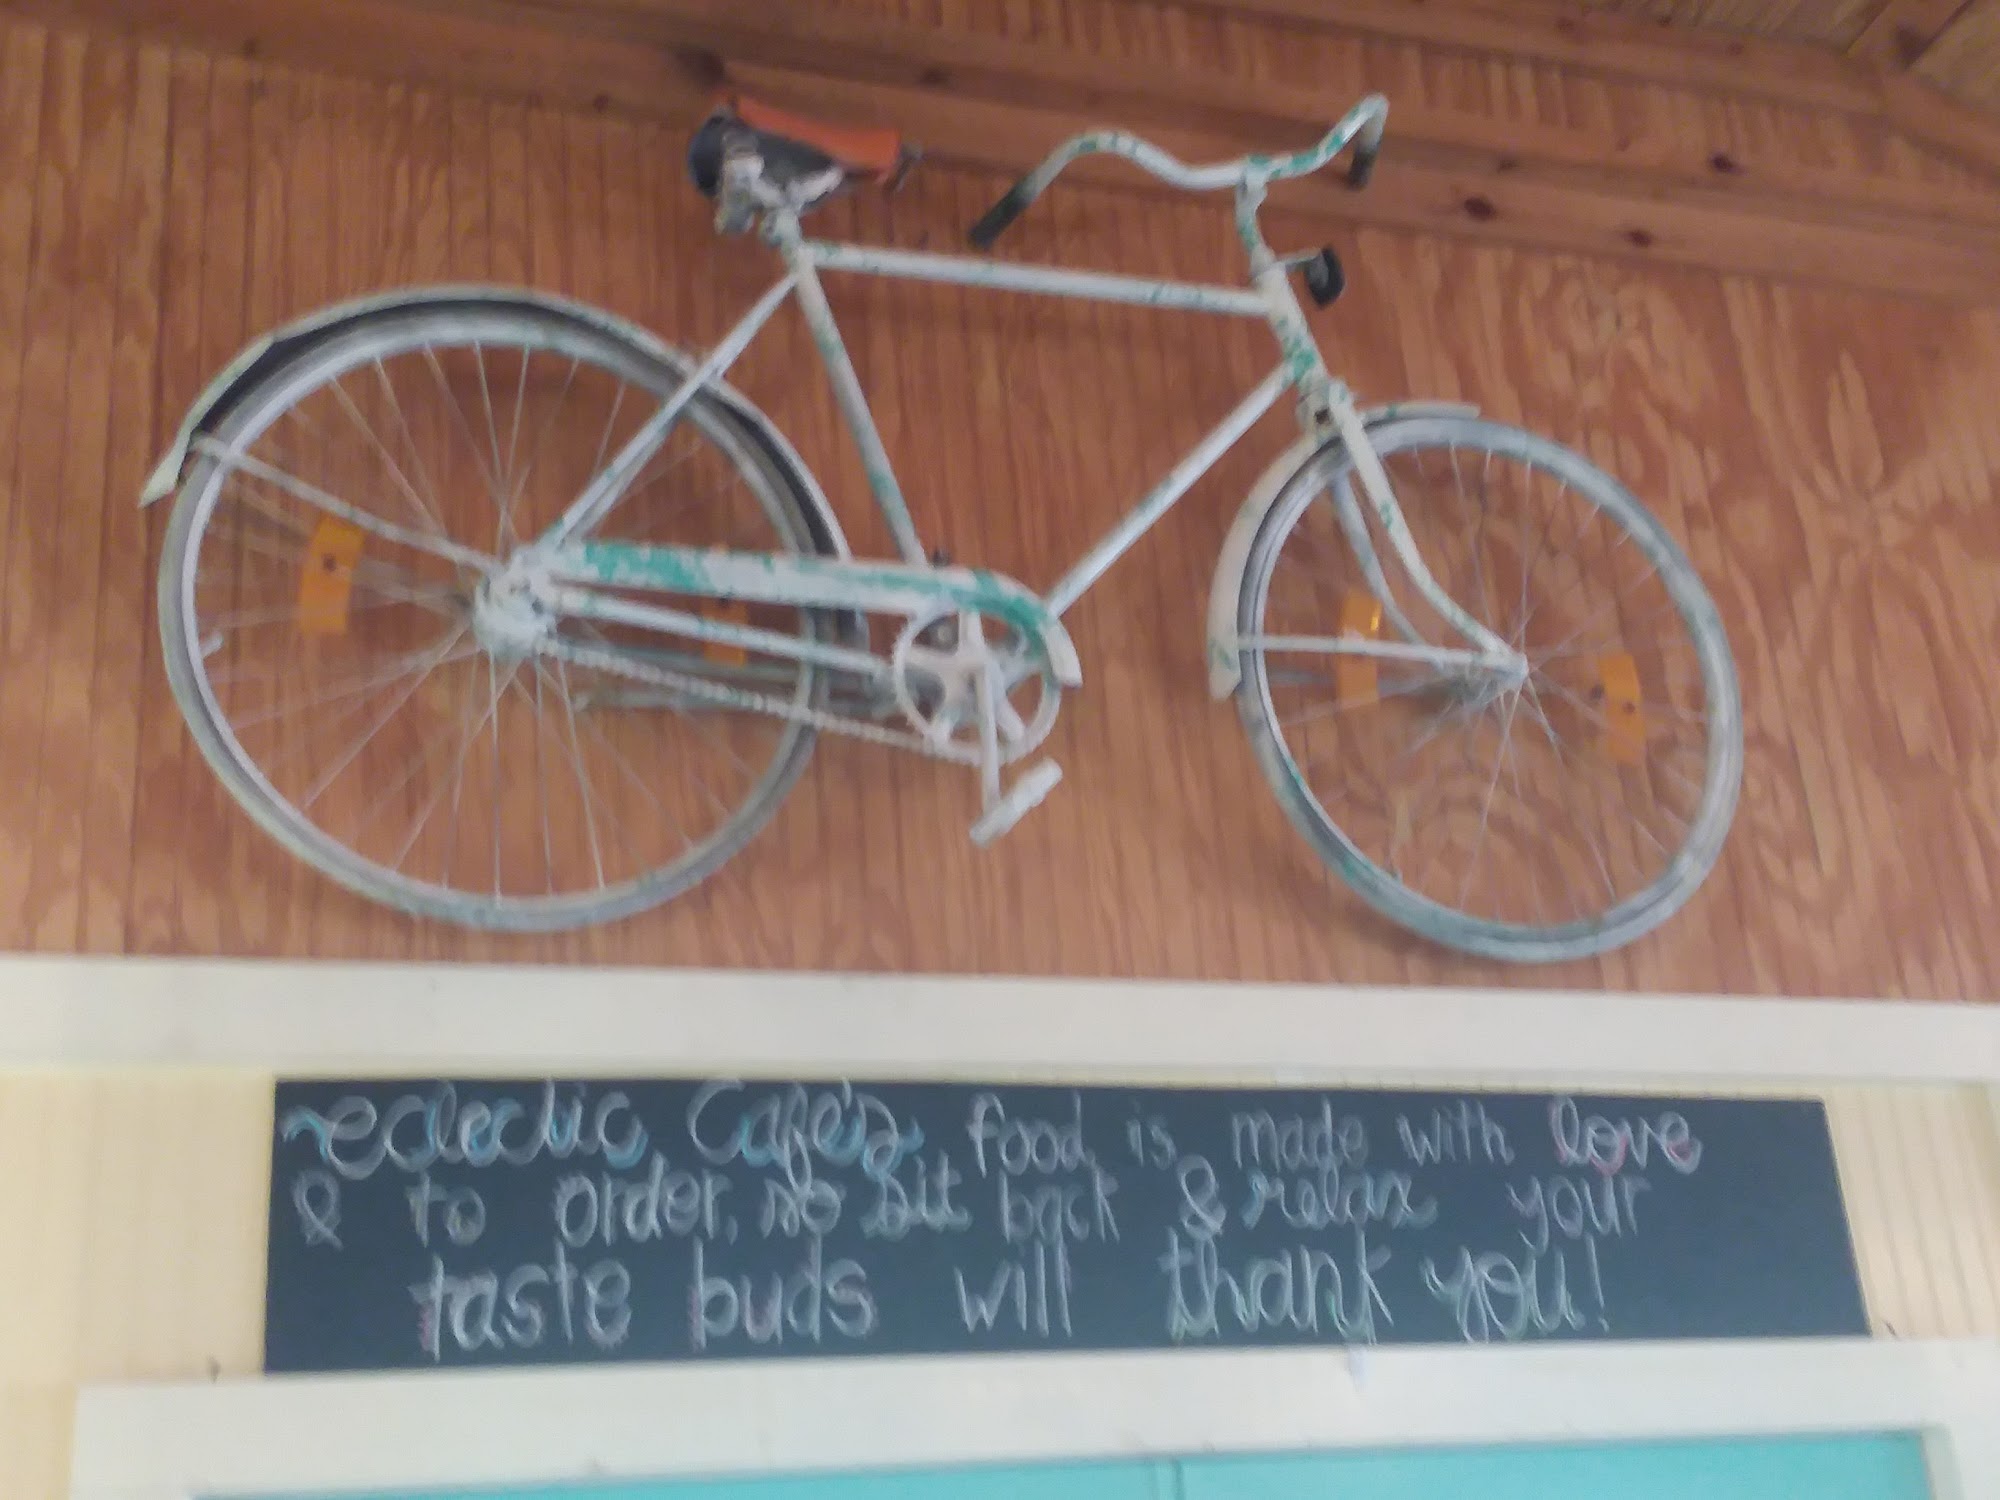 eclectic Cafe's food is made with love
& to order, so sit back & relax your
taste buds will thank you!